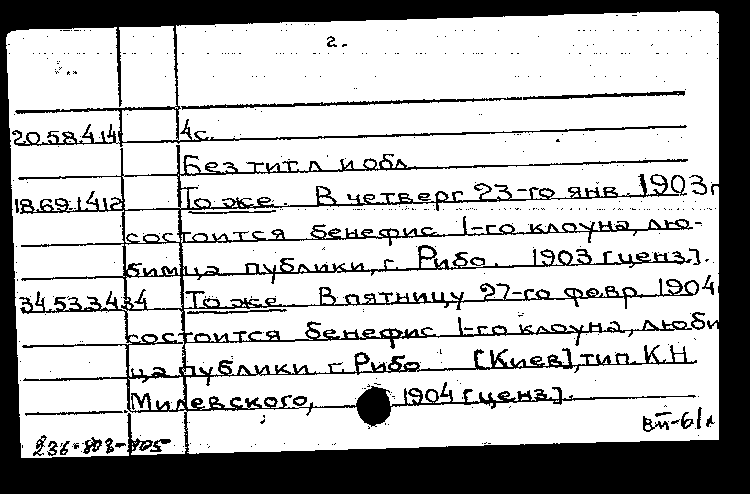 2.
20.58.414 4с.
Без тит.л и обл
18.69.1412 То же. В четверг 23-го янв. 1903 г
состоится бенефис 1-го клоуна, лю-
бимца публики, г. Рибо. 1903 [ценз].
34.53.3434 То же. В пятницу 27-го февр. 1904
состоится бенефис 1-го клоуна, люби
ца публики г. Рибо [Киев], тип. К.Н.
Милевского, 1904 [ценз].
вп-61л